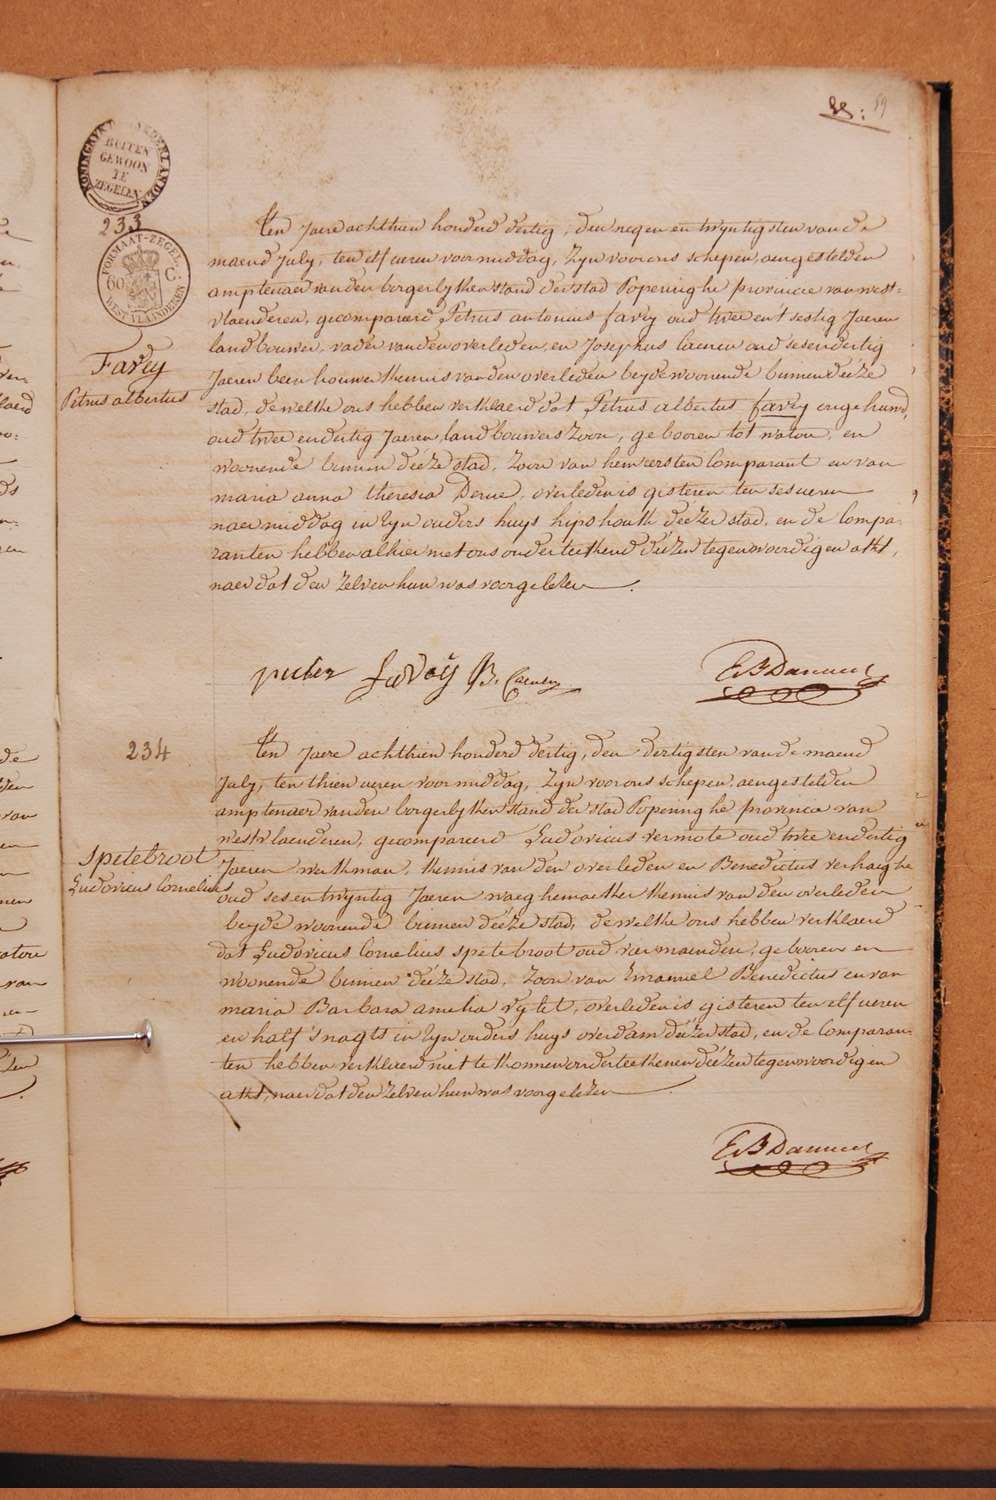 59
KONINGRYK DER NEDERLANDEN
BUITEN
GEWOON
TE
ZEGELEN
233
FORMAAT-ZEGEL
60 C.
WEST VLAANDEREN
Favey
Petrus albertus
Ten Jaere achthien honderd dertig, den negen en twyntigsten van de
maend July, ten elf ueren voormiddag, zyn voor ons schepen, aengestelden
amptenaer van den borgerlyken stand der stad Poperinghe provincie van west=
vlaenderen, gecompareerd Petrus antonius favey oud twee ent sestig Jaeren
landbouwer, vader van den overleden, en Josephus Caenen oud ses en dertig
Jaeren been houwer kennis van den overleden beyde woonende binnen deéze
stad, de welke ons hebben verklaerd dat Petrus albertus favey ongehuwd,
oud twee en dertig Jaeren landbouwers zoon, gebooren tot waton, en
woonende binnen deéze stad, zoon van hem eersten Comparant en van
maria anna theresia Derue, overleden is gisteren ten ses ueren
naermiddag in zyn ouders huys hipshouk deézer stad, en de Compa-
ranten hebben alhier met ons onderteekend deézen tegenwoordigen akt,
naer dat den zelven hun was voorgelezen.
pieter favoÿ B. Caenen
234
Ten Jaere achthien honderd dertig, den dertigsten van de maend
July, ten thien ueren voormiddag, zyn voor ons schepen, aengestelden
amptenaer van den borgerlyken stand der stad Poperinghe provincie van
westvlaenderen, gecompareerd Ludovicus vermote oud twee en dertig
Spetebroot
Ludovicus Cornelius
Jaeren werkman, kennis van den overleden en Benedictus verhaighe
oud ses en twyntig Jaeren waeghemaeker kennis van den overleden
beyde woonende binnen deéze stad, de welke ons hebben verklaerd
dat Ludovicus Cornelius spetebroot oud vier maenden, gebooren en
woonende binnen deéze stad, zoon van Emanuel Benedictus en van
maria Barbara amelia rytet, overleden is gisteren ten elf ueren
en half 's nagts in zyn ouders huys overdam deézer stad, en de Comparan-
ten hebben verklaerd niet te konnen onderteekenen deézen tegenwoordigen
akt, naer dat den zelven hun was voorgelezen